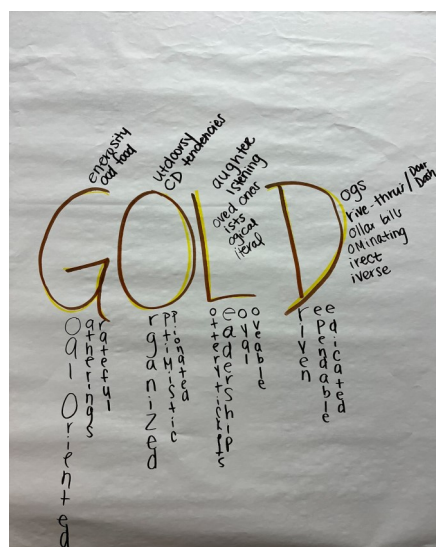 enerosity
ood food
utdoorsy
CD tendencies
aughter
istening
oved ones
ists
ogical
iteral
ogs
rive-thrus/Door Dash
ollar bills
ominating
irect
iverse
GOLD
oal Oriented
atherings
rateful
rganized
ptimistic
pinionated
otterytickets
eadership
oyal
oveable
riven
ependable
edicated